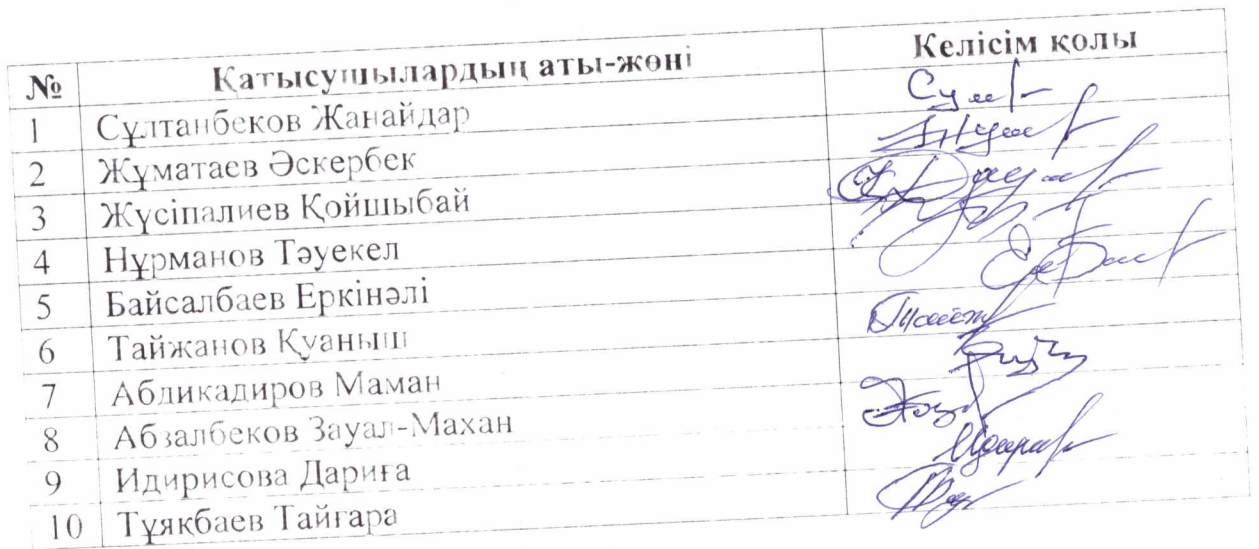 № Қатысушылардың аты-жөні Келісім қолы
1 Сұлтанбеков Жанайдар
2 Жұматаев Әскербек
3 Жүсіпалиев Қойшыбай
4 Нұрманов Тәуекел
5 Байсалбаев Еркінәлі
6 Тайжанов Қуаныш
7 Абдикадиров Маман
8 Абзалбеков Зауал-Махан
9 Идирисова Дариға
10 Тұяқбаев Тайғара